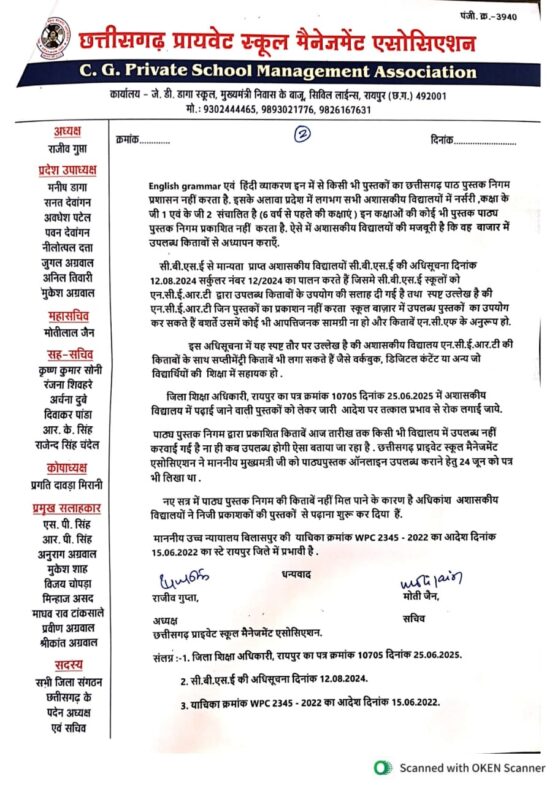 पंजी. क्र.-3940
छत्तीसगढ़ प्रायवेट स्कूल मैनेजमेंट एसोसिएशन
C. G. Private School Management Association
कार्यालय - जे. डी. डागा स्कूल, मुख्यमंत्री निवास के बाजू, सिविल लाईन्स, रायपुर (छ.ग.) 492001
मो.: 9302444465, 9893021776, 9826167631
अध्यक्ष
राजीव गुप्ता
प्रदेश उपाध्यक्ष
मनीष डागा
सनत देवांगन
अवधेश पटेल
पवन देवांगन
नीलोत्पल दत्ता
जुगल अग्रवाल
अनिल तिवारी
मुकेश अग्रवाल
महासचिव
मोतीलाल जैन
सह-सचिव
कृष्ण कुमार सोनी
रंजना शिवहरे
अर्चना दुबे
दिवाकर पांडा
आर. के. सिंह
राजेन्द्र सिंह चंदेल
कोषाध्यक्ष
प्रगति दावड़ा मिरानी
प्रमुख सलाहकार
एस. पी. सिंह
आर. पी. सिंह
अनुराग अग्रवाल
मुकेश शाह
विजय चोपड़ा
मिन्हाज असद
माधव राव टांकसाले
प्रवीण अग्रवाल
श्रीकांत अग्रवाल
सदस्य
सभी जिला संगठन
छत्तीसगढ़ के
पदेन अध्यक्ष
एवं सचिव
क्रमांक............. 2 दिनांक.....................
English grammar एवं हिंदी व्याकरण इन में से किसी भी पुस्तकों का छत्तीसगढ़ पाठ पुस्तक निगम
प्रशासन नहीं करता है. इसके अलावा प्रदेश में लगभग सभी अशासकीय विद्यालयों में नर्सरी ,कक्षा के
जी 1 एवं के जी 2 संचालित है (6 वर्ष से पहले की कक्षाएं ) इन कक्षाओं की कोई भी पुस्तक पाठ्य
पुस्तक निगम प्रकाशित नहीं करता है. ऐसे में अशासकीय विद्यालयों की मजबूरी है कि वह बाजार में
उपलब्ध किताबों से अध्यापन कराएँ.
सी.बी.एस.ई से मान्यता प्राप्त अशासकीय विद्यालयों सी.बी.एस.ई की अधिसूचना दिनांक
12.08.2024 सर्कुलर नंबर 12/2024 का पालन करते हैं जिसमे सी.बी.एस.ई स्कूलों को
एन.सी.ई.आर.टी द्वारा उपलब्ध किताबों के उपयोग की सलाह दी गई है तथा स्पष्ट उल्लेख है की
एन.सी.ई.आर.टी जिन पुस्तकों का प्रकाशन नहीं करता स्कूल बाज़ार में उपलब्ध पुस्तकों का उपयोग
कर सकते हैं बशर्ते उसमें कोई भी आपत्तिजनक सामग्री ना हो और किताबें एन.सी.एफ के अनुरूप हो.
इस अधिसूचना में यह स्पष्ट तौर पर उल्लेख है की अशासकीय विद्यालय एन.सी.ई.आर.टी की
किताबों के साथ सप्लीमेंट्री किताबें भी लगा सकते हैं जैसे वर्कबुक, डिजिटल कंटेंट या अन्य जो
विद्यार्थियों की शिक्षा में सहायक हो .
जिला शिक्षा अधिकारी, रायपुर का पत्र क्रमांक 10705 दिनांक 25.06.2025 में अशासकीय
विद्यालय में पढ़ाई जाने वाली पुस्तकों को लेकर जारी आदेश पर तत्काल प्रभाव से रोक लगाई जाये.
पाठ्य पुस्तक निगम द्वारा प्रकाशित किताबें आज तारीख तक किसी भी विद्यालय में उपलब्ध नहीं
करवाई गई है ना ही कब उपलब्ध होगी ऐसा बताया जा रहा है . छत्तीसगढ़ प्राइवेट स्कूल मैनेजमेंट
एसोसिएशन ने माननीय मुख्यमंत्री जी को पाठ्यपुस्तक ऑनलाइन उपलब्ध कराने हेतु 24 जून को पत्र
भी लिखा था .
नए सत्र में पाठ्य पुस्तक निगम की किताबें नहीं मिल पाने के कारण है अधिकांश अशासकीय
विद्यालयों ने निजी प्रकाशकों की पुस्तकों से पढ़ाना शुरू कर दिया हैं.
माननीय उच्च न्यायालय बिलासपुर की याचिका क्रमांक WPC 2345 - 2022 का आदेश दिनांक
15.06.2022 का स्टे रायपुर जिले में प्रभावी है .
धन्यवाद
राजीव गुप्ता, मोती जैन,
अध्यक्ष सचिव
छत्तीसगढ़ प्राइवेट स्कूल मैनेजमेंट एसोसिएशन.
संलग्न :-1. जिला शिक्षा अधिकारी, रायपुर का पत्र क्रमांक 10705 दिनांक 25.06.2025.
2. सी.बी.एस.ई की अधिसूचना दिनांक 12.08.2024.
3. याचिका क्रमांक WPC 2345 - 2022 का आदेश दिनांक 15.06.2022.
Scanned with OKEN Scanner